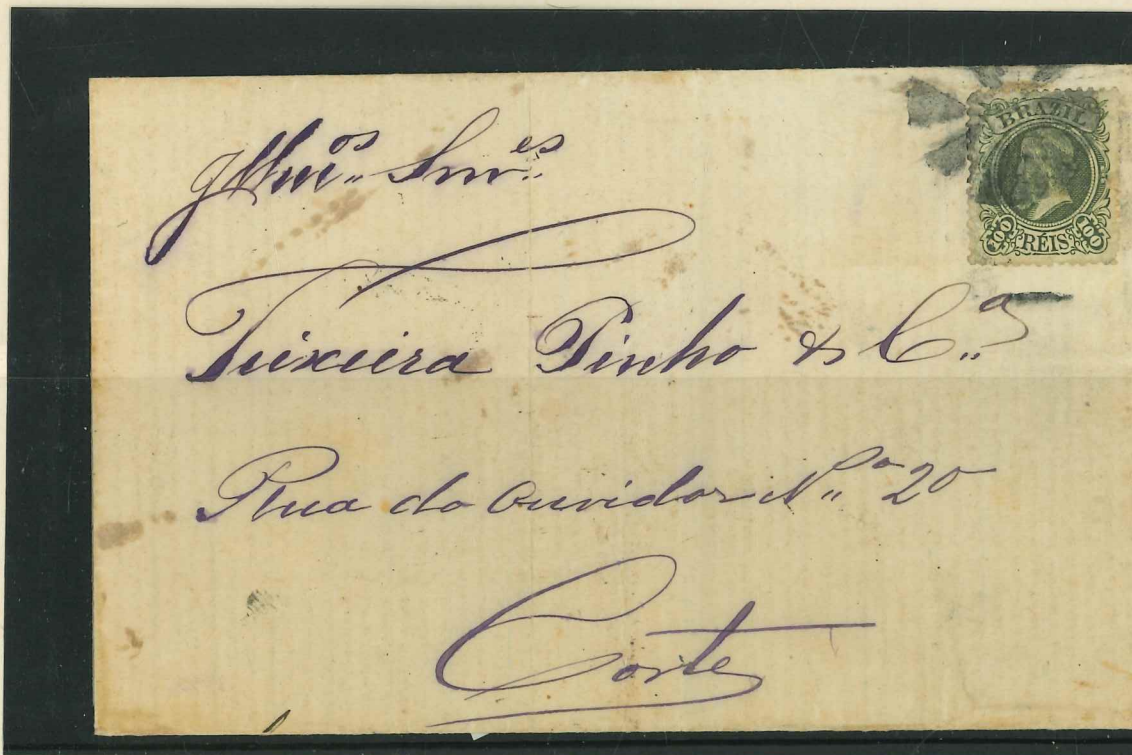 BRAZIL
100 RÉIS 100
Illmos Snres
Teixeira Pinho & Ca
Rua do Ouvidor No 20
Corte